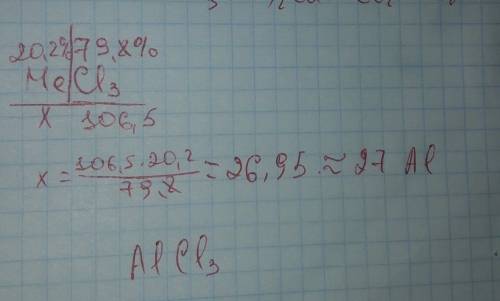 20,2% 79,8%
Me Cl₃
x 106,5
x = 106,5·20,2 / 79,8 = 26,95 ≈ 27 Al
AlCl₃